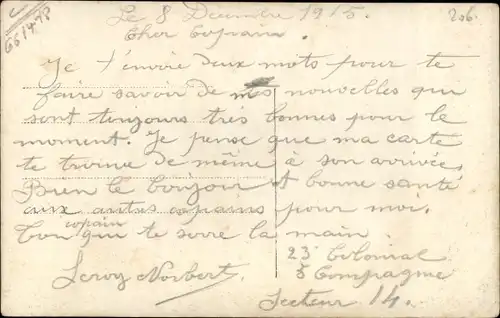 661478
Le 8 Décembre 1915.
206
Cher Copain.
Je t'envoie deux mots pour te
faire savoir de mes nouvelles qui
sont toujours très bonnes pour le
moment. Je pense que ma carte
te trouve de même à son arrivée.
Bien le bonjour et bonne santé
aux autres copains pour moi.
Ton copain qui te serre la main.
Leroy Norbert.
23 Colonial
5 Compagnie
Secteur 14.